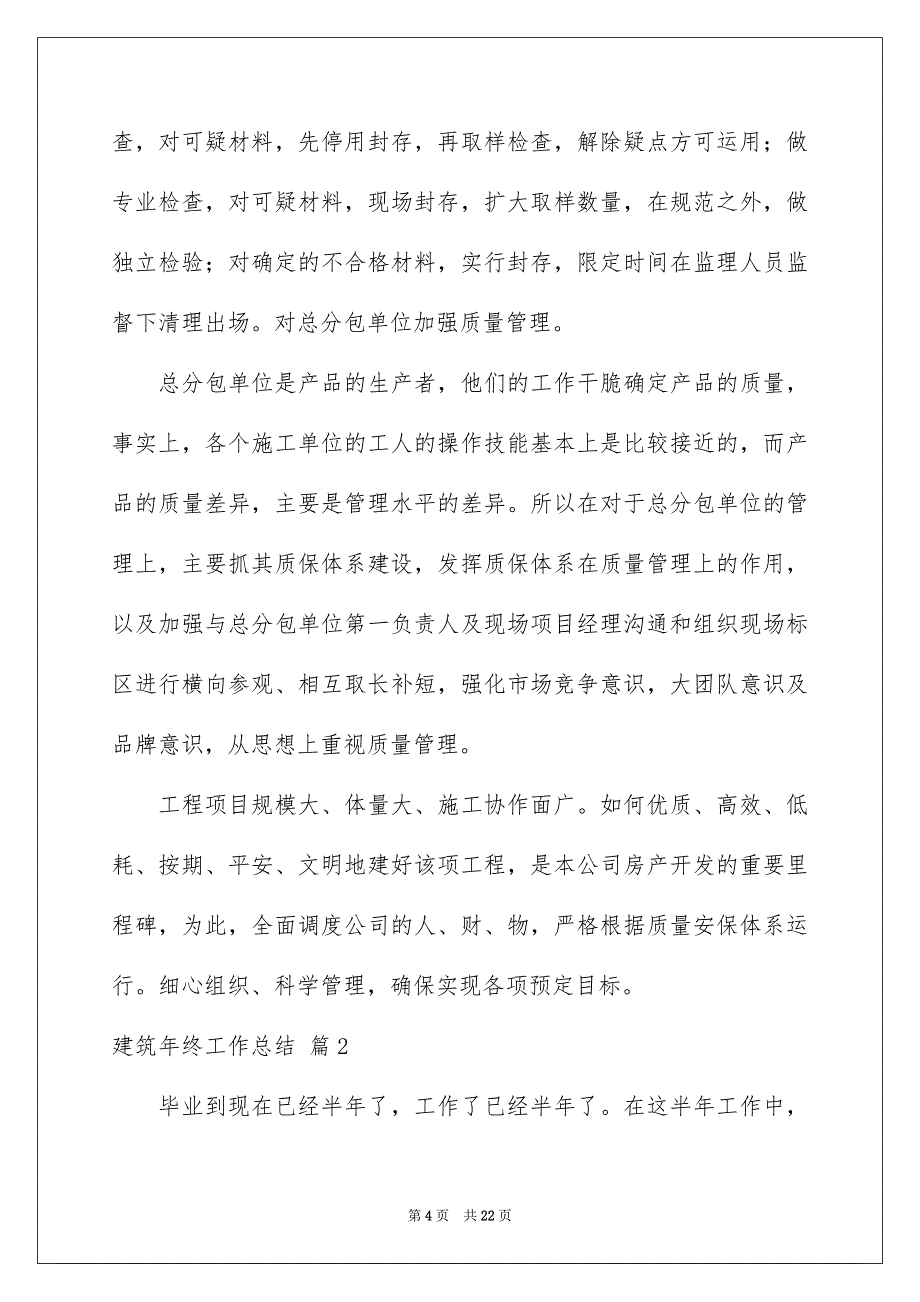 查，对可疑材料，先停用封存，再取样检查，解除疑点方可运用；做
专业检查，对可疑材料，现场封存，扩大取样数量，在规范之外，做
独立检验；对确定的不合格材料，实行封存，限定时间在监理人员监
督下清理出场。对总分包单位加强质量管理。
总分包单位是产品的生产者，他们的工作干脆确定产品的质量，
事实上，各个施工单位的工人的操作技能基本上是比较接近的，而产
品的质量差异，主要是管理水平的差异。所以在对于总分包单位的管
理上，主要抓其质保体系建设，发挥质保体系在质量管理上的作用，
以及加强与总分包单位第一负责人及现场项目经理沟通和组织现场标
区进行横向参观、相互取长补短，强化市场竞争意识，大团队意识及
品牌意识，从思想上重视质量管理。
工程项目规模大、体量大、施工协作面广。如何优质、高效、低
耗、按期、平安、文明地建好该项工程，是本公司房产开发的重要里
程碑，为此，全面调度公司的人、财、物，严格根据质量安保体系运
行。细心组织、科学管理，确保实现各项预定目标。
建筑年终工作总结 篇2
毕业到现在已经半年了，工作了已经半年了。在这半年工作中，
第4页 共22页